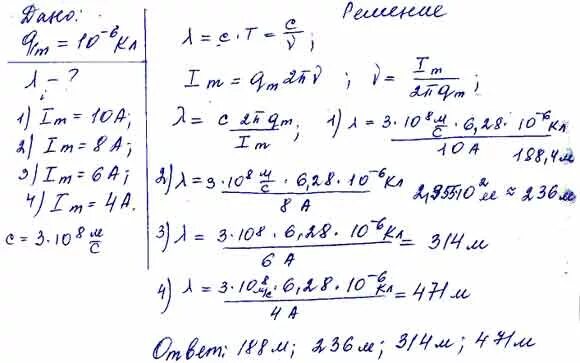 Дано:
q_m = 10^-6 Кл
λ - ?
1) I_m = 10 А;
2) I_m = 8 А;
3) I_m = 6 А;
4) I_m = 4 А.
c = 3·10^8 м/с
Решение
λ = c·T = c/ν;
I_m = q_m 2πν ; ν = I_m/2πq_m;
λ = c 2πq_m/I_m; 1) λ = 3·10^8 м/с · 6,28·10^-6 Кл/10 А 188,4 м
2) λ = 3·10^8 м/с · 6,28·10^-6 Кл/8 А 2,355·10^2 м ≈ 236 м
3) λ = 3·10^8 · 6,28·10^-6 Кл/6 А = 314 м
4) λ = 3·10^8 м/с · 6,28·10^-6 Кл/4 А = 471 м
Ответ: 188 м; 236 м; 314 м; 471 м